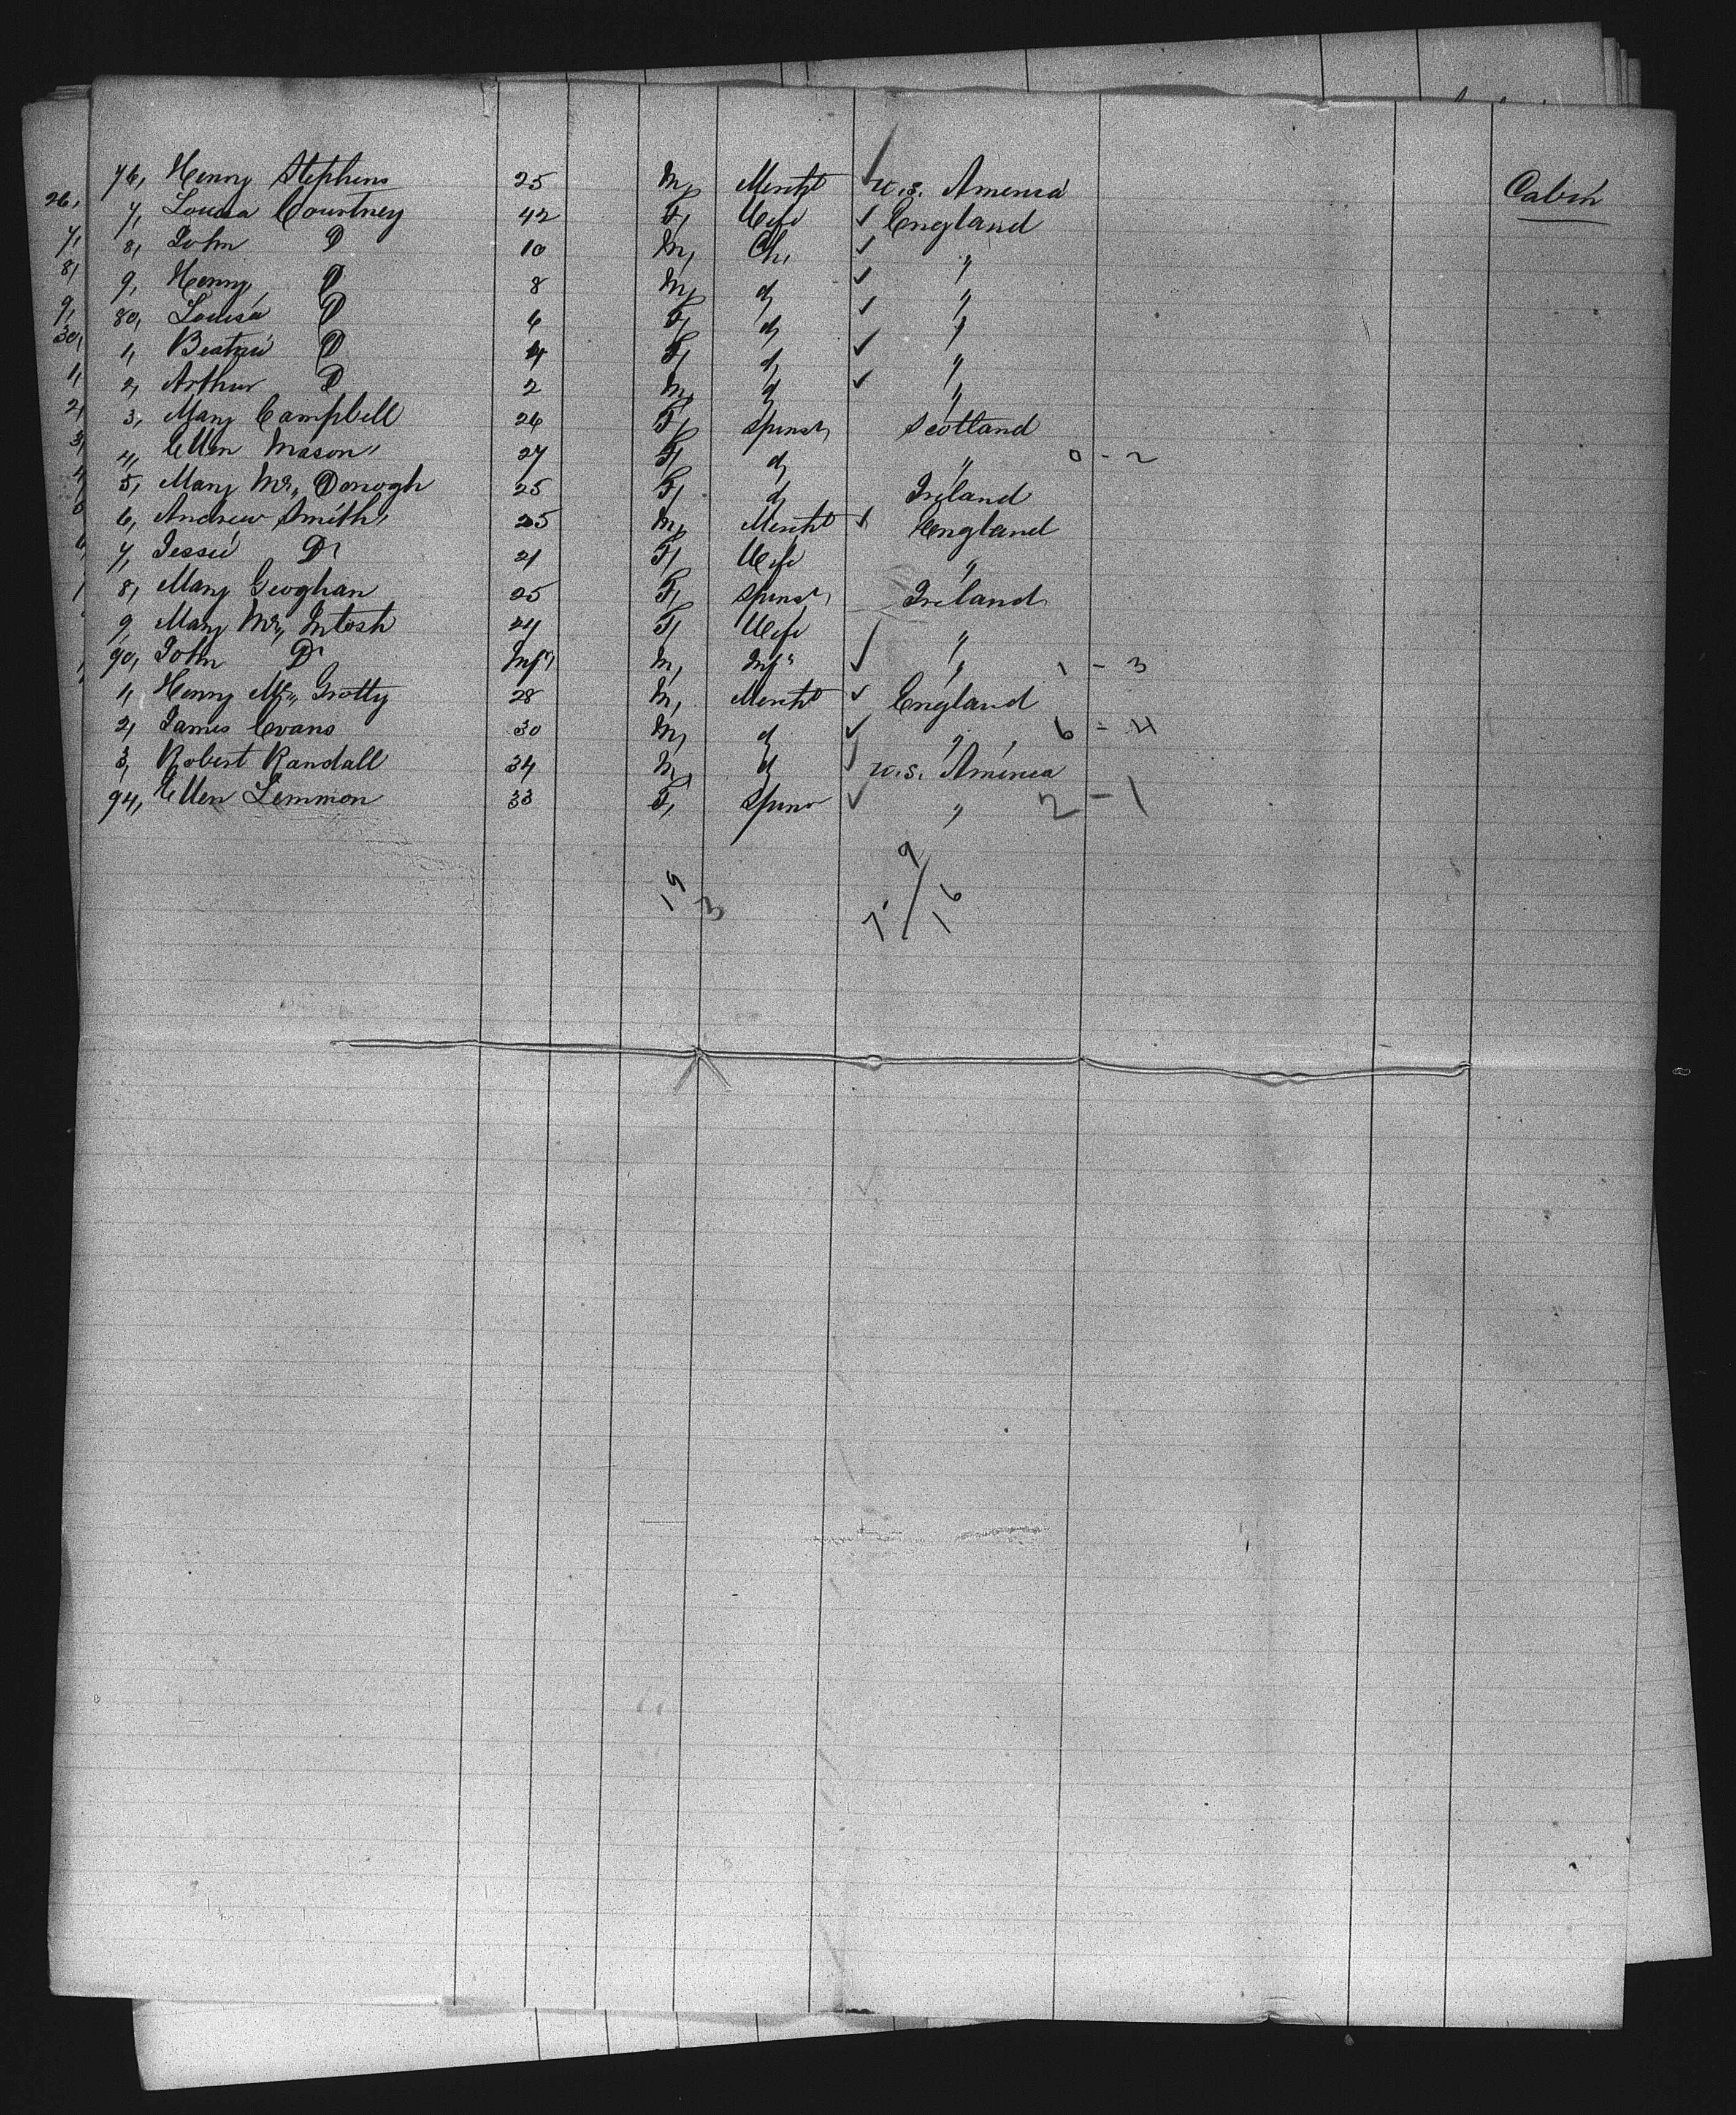 Cabin
76, Henry Stephens 25 M, Mercht U.S. America
7, Louisa Courtney 42 F, Wife England
8, John D 10 M, Ch, "
9, Henry D 8 M, d "
80, Louisa D 6 F, d "
1, Beatrice D 4 F, d "
2, Arthur D 2 M, d "
3, Mary Campbell 26 F, Spinst, Scotland
4, Ellen Mason 27 F, d " 0 - 2
5, Mary Mc,, Donogh 25 F, d Ireland
6, Andrew Smith 25 M, Mercht England
7, Jessie Do 21 F, Wife "
8, Mary Geoghan 25 F, Spinst, Ireland
9, Mary Mc,, Intosh 24 F, Wife "
90, John Do Inft M, Inft " 1 - 3
1, Henry Mc,, Grotty 28 M, Mercht England
2, James Evans 30 M, d " 6 - 4
3, Robert Randall 34 M, d U.S. America
94, Ellen Lemmon 33 F, Spins " 2 - 1
9
19 3 7 / 16